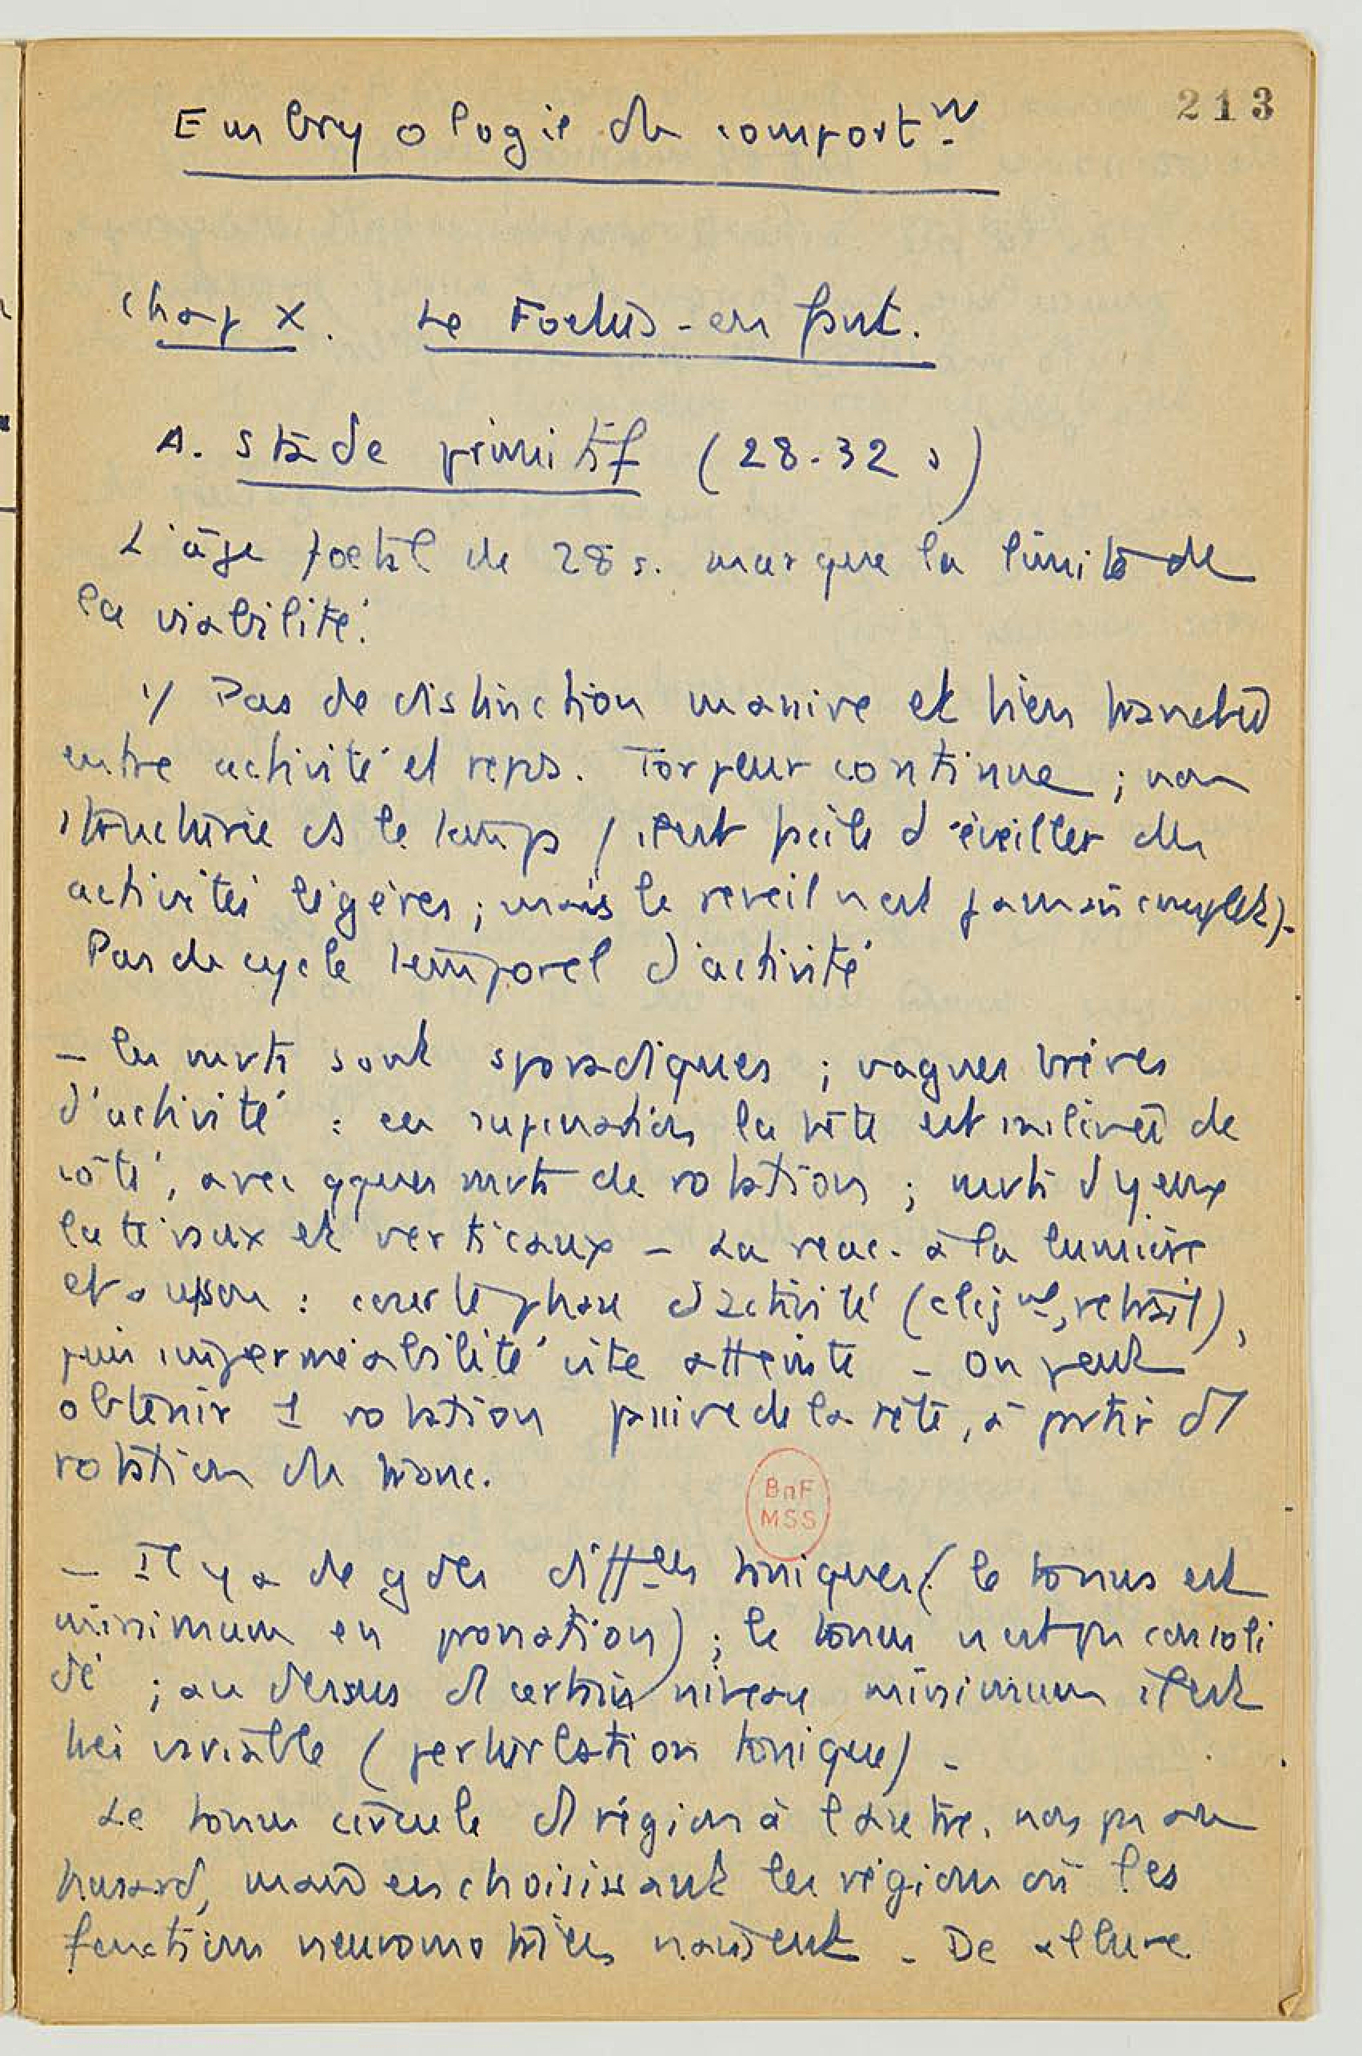 213
Embryologie du comportt.
Chap X. Le Foetus-enfant.
A. Stade primitif (28-32 s)
L'âge foetal de 28 s. marque la limite de
la viabilité.
1/ Pas de distinction massive et bien tranchée
entre activité et repos. Torpeur continue ; non
structurée ds le temps (il est facile d'éveiller des
activités légères ; mais le réveil n'est jamais complet).
Pas de cycle temporel d'activité
- les mvts sont sporadiques ; vagues brèves
d'activité : en supination la tête est inclinée de
côté, avec qques mvts de rotation ; mvts d yeux
latéraux et verticaux - La réac. à la lumière
et au son : courte phase d'activité (clignt, retrait),
puis imperméabilité vite atteinte - On peut
obtenir 1 rotation passive de la tête, à partir d 1
rotation du tronc.
BnF
MSS
- Il y a de gdes difftes toniques (le tonus est
minimum en pronation) ; le tonus n'est pas consoli
dé ; au dessus d 1 certain niveau minimum il est
très variable (perturbation tonique) -
Le tonus circule d 1 région à l'autre, non pas au
hasard, mais en choisissant les régions où les
fonctions neuromotrices naissent - De allure